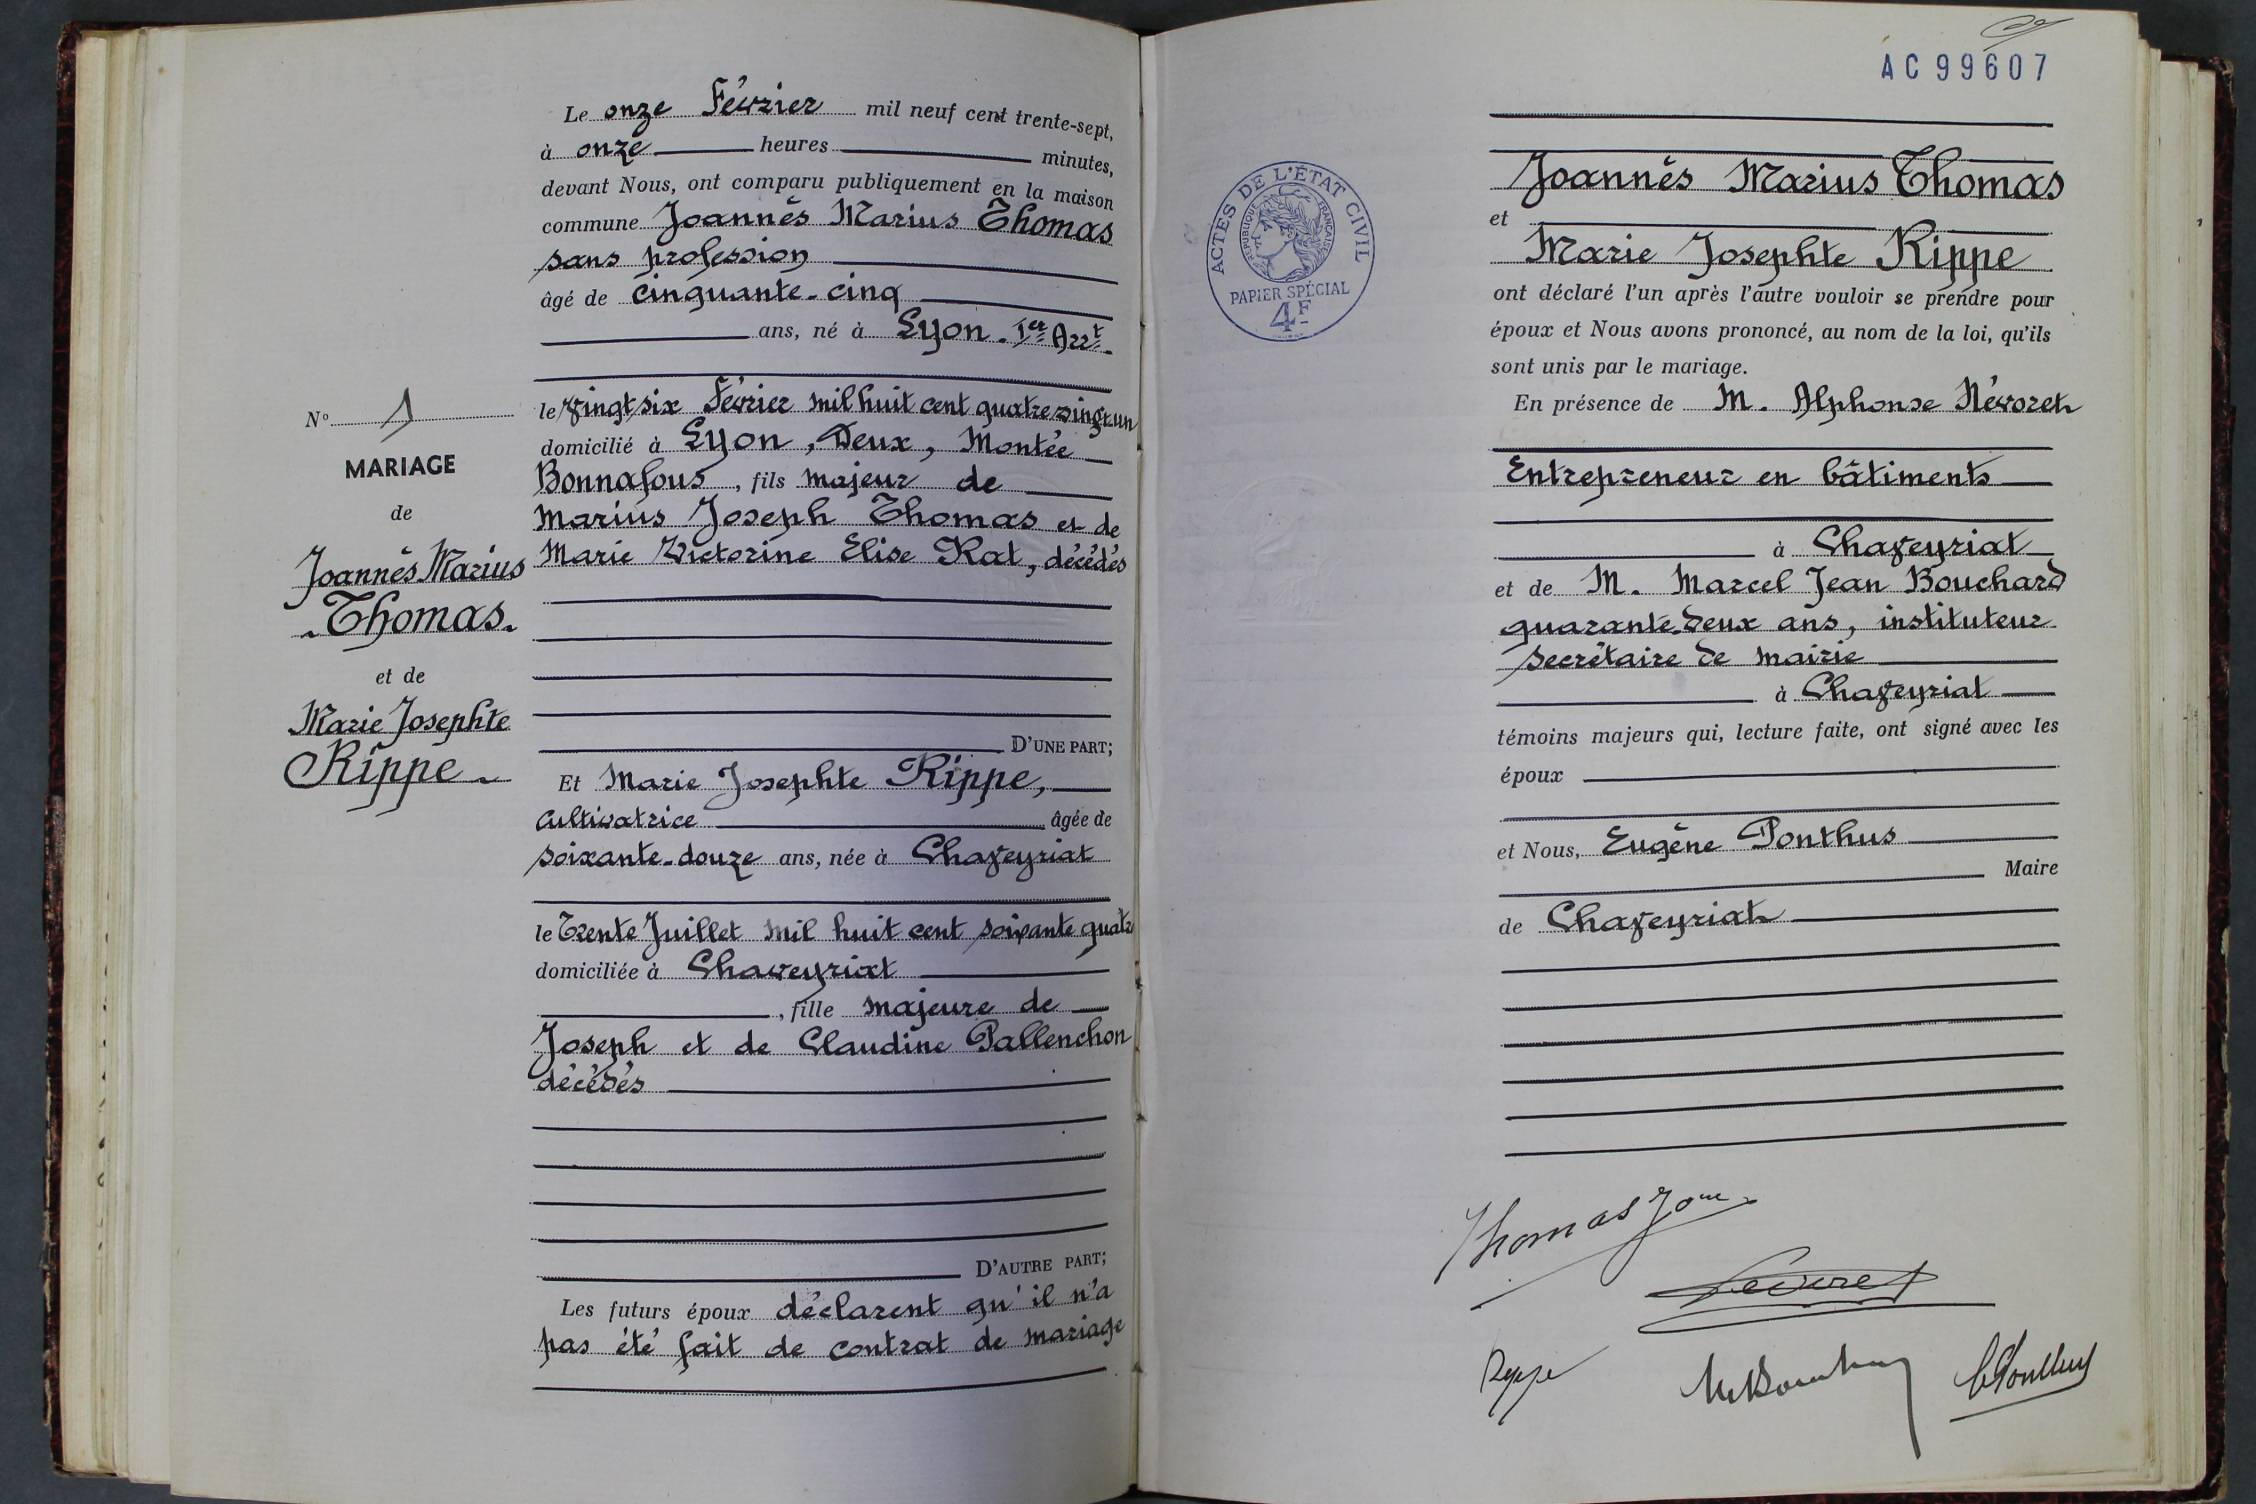 Le onze Février mil neuf cent trente-sept,
à onze heures minutes,
devant Nous, ont comparu publiquement en la maison
commune Joannès Marius Thomas
sans profession
âgé de cinquante-cinq
ans, né à Lyon. 1er Arrt.
le vingt six Février mil huit cent quatre vingt un
domicilié à Lyon, Deux, Montée
Bonnafous, fils majeur de
Marius Joseph Thomas et de
Marie Victorine Elise Rat, décédés
D'UNE PART;
Et Marie Josephte Rippe,
cultivatrice âgée de
soixante-douze ans, née à Chaveyriat
le Trente Juillet mil huit cent soixante quatre
domiciliée à Chaveyriat
, fille majeure de
Joseph et de Claudine Pallenchon
décédés
D'AUTRE PART;
Les futurs époux déclarent qu'il n'a
pas été fait de contrat de mariage
No 1
MARIAGE
de
Joannès Marius
Thomas.
et de
Marie Josephte
Rippe
AC99607
ACTES DE L'ÉTAT CIVIL
RÉPUBLIQUE FRANÇAISE
PAPIER SPÉCIAL
4F
Joannès Marius Thomas
et
Marie Josephte Rippe
ont déclaré l'un après l'autre vouloir se prendre pour
époux et Nous avons prononcé, au nom de la loi, qu'ils
sont unis par le mariage.
En présence de M. Alphonse Névoret
Entrepreneur en bâtiments
à Chaveyriat
et de M. Marcel Jean Bouchard
quarante-deux ans, instituteur
secrétaire de mairie
à Chaveyriat
témoins majeurs qui, lecture faite, ont signé avec les
époux
et Nous, Eugène Ponthus
Maire
de Chaveyriat
Thomas
Névoret
Rippe
Ponthus